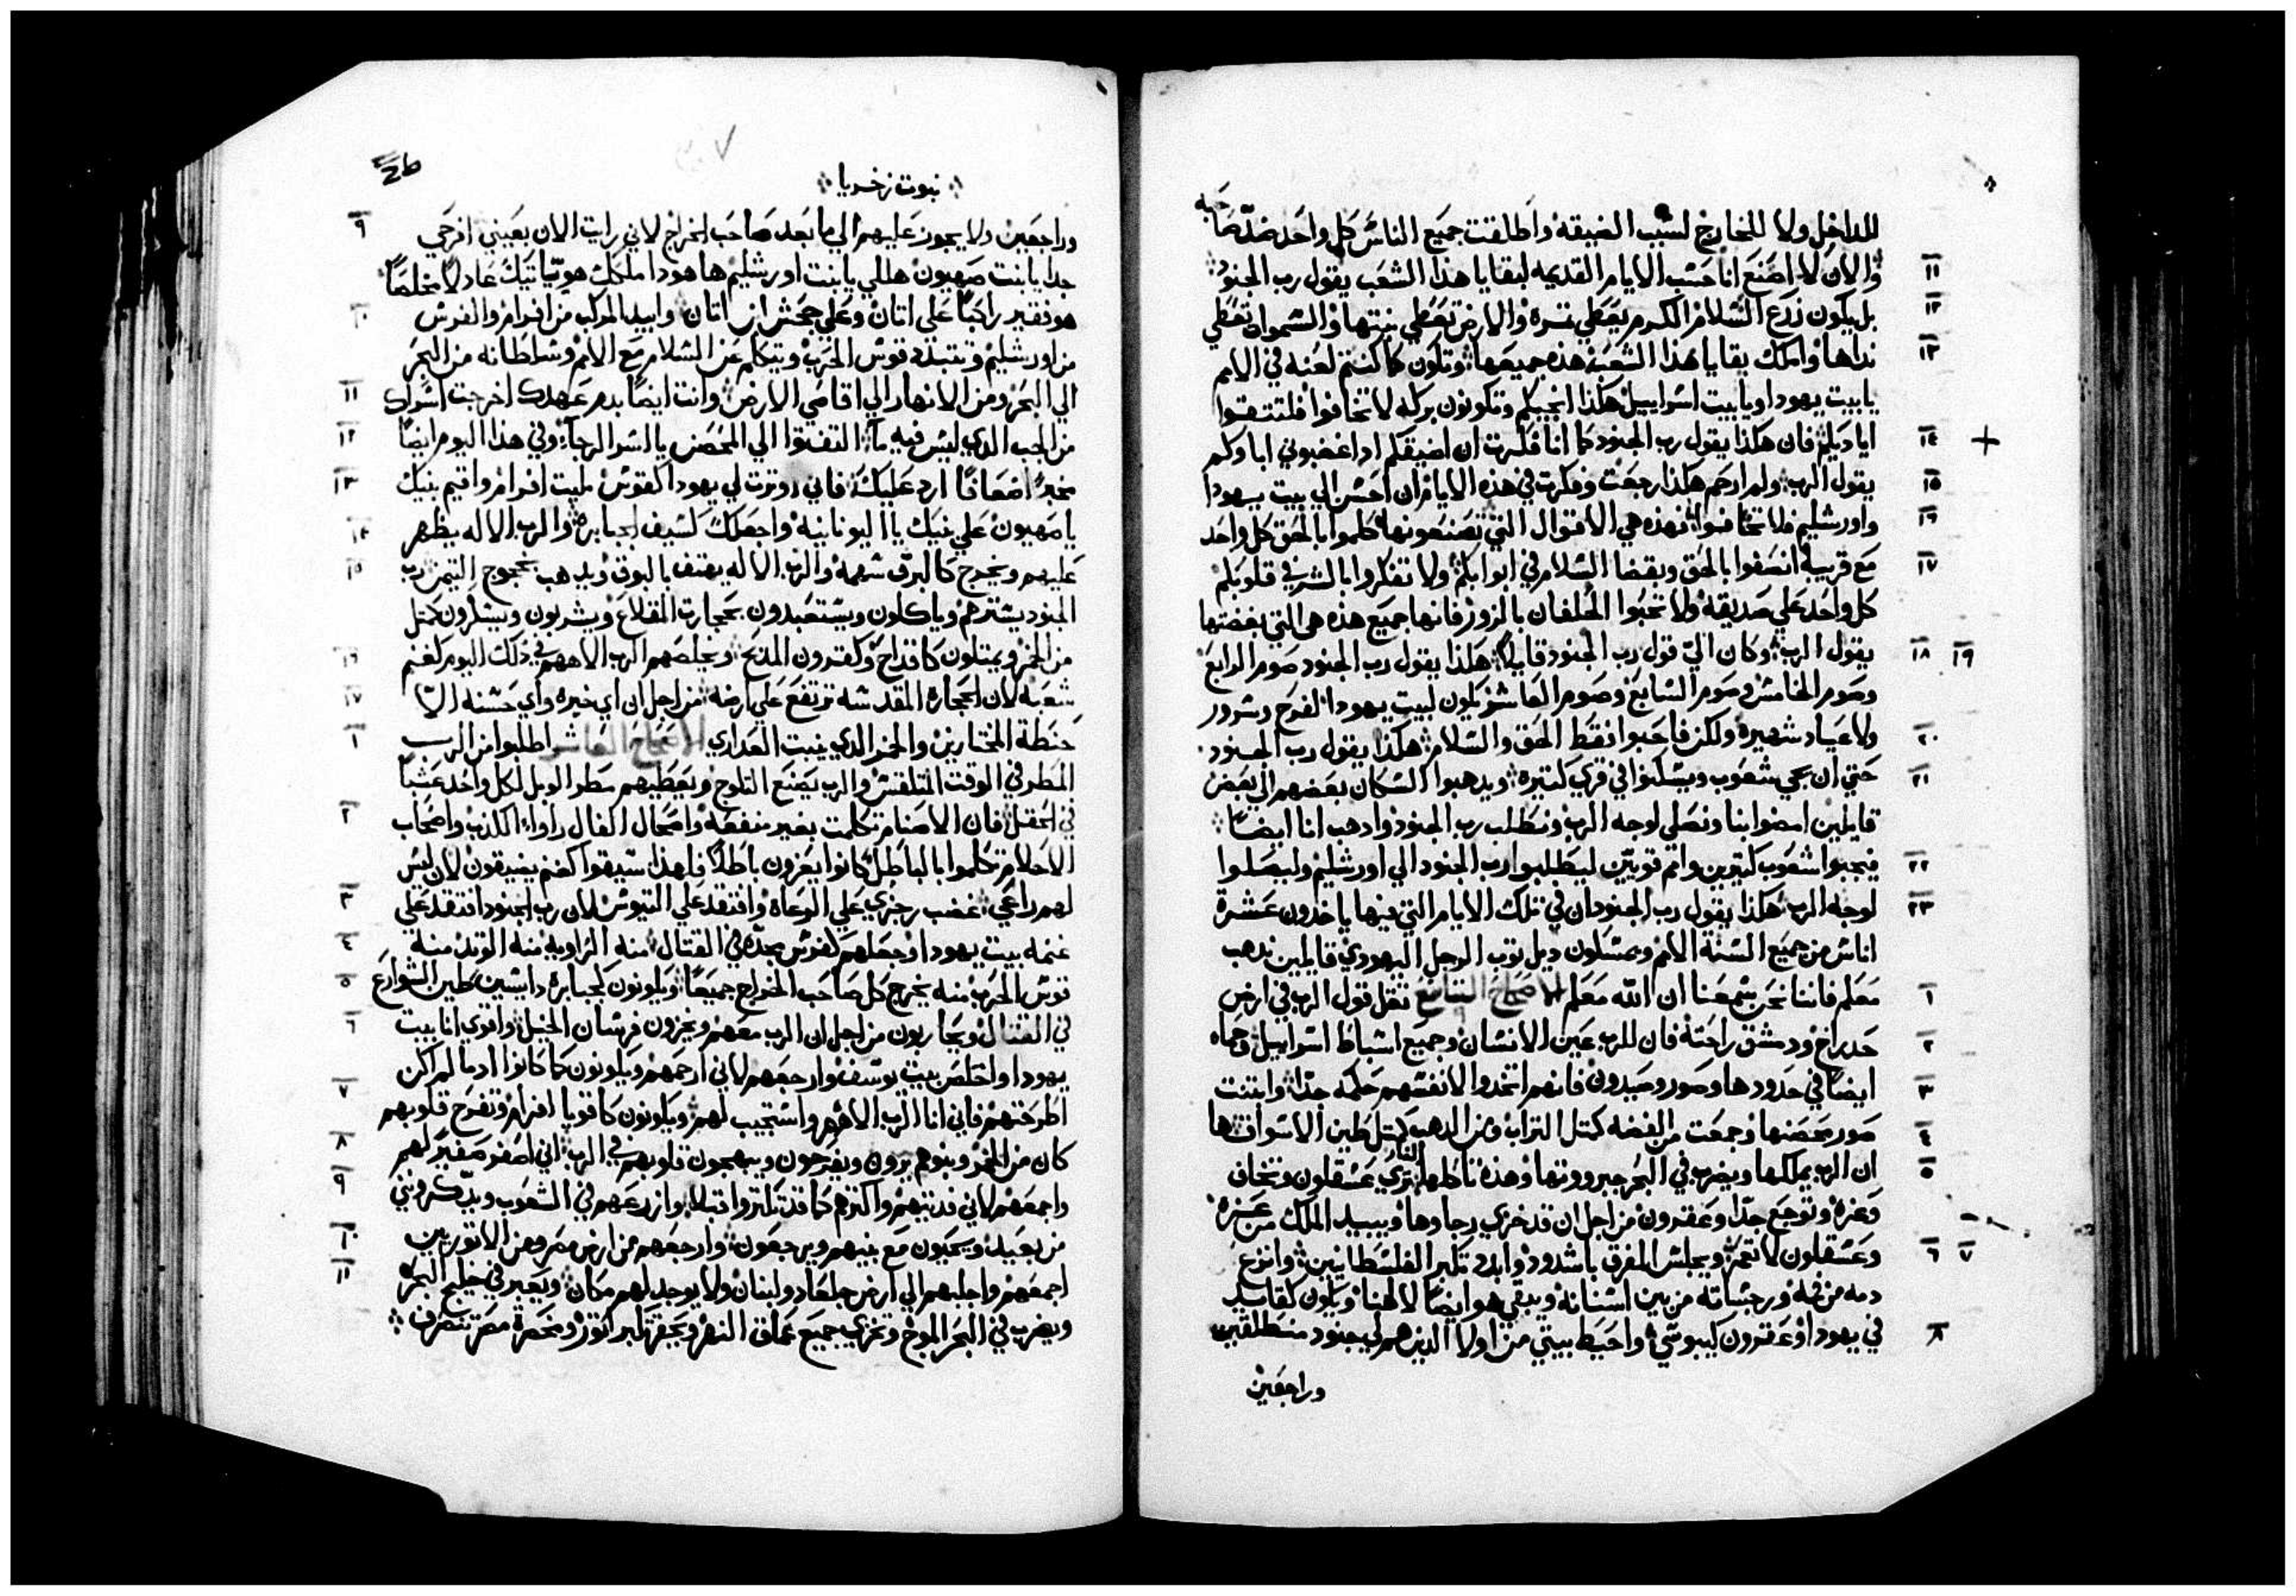 للداخل ولا للخارج لسبب الضيقه واطلقت جميع الناس كل واحد ضد صاحبه
١١ والان لا اصنع انا حسب الايام القديمه لبقايا هذا الشعب يقول رب الجنود
١٢ بل يكون زرع السلام الكرم يعطي تمره والارض تعطي نبتها والسموات تعطي
١٣ نداها واملك بقايا هذا الشعب هذه جميعها وتكون كما كنتم لعنه في الامم
يا بيت يهودا ويا بيت اسراييل هكذا انجيكم وتكونون بركه لا تخافوا فلتتقوا
١٤ اياديكم فان هكذا يقول رب الجنود كما انا فكرت ان اضيقكم اد اغضبوني اباوكم
١٥ يقول الرب ولم ارحم هكذا رجعت وفكرت في هذه الايام ان احسن الي بيت يهودا
١٦ واورشليم فلا تخافوا فهذه هي الاقوال التي تصنعونها كلموا بالحق كل واحد
١٧ مع قريبه انصفوا بالحق وبقضا السلام في ابوابكم ولا تفكروا بالشر في قلوبكم
كل واحد علي صديقه ولا تحبوا الحلفان بالزور فانها جميع هذه هي التي بغضتها
١٨ ١٩ يقول الرب وكان الي قول رب الجنود قايلا هكذا يقول رب الجنود صوم الرابع
وصوم الخامس وصوم السابع وصوم العاشر يكون لبيت يهودا لفرح وسرور
٢٠ ولاعياد شهيره ولكن فاحبوا فقط الحق والسلام هكذا يقول رب الجنود
٢١ حتي ان تجي شعوب ويسكنوا في قري كتيره ويدهبوا السكان بعضهم الي بعض
قايلين امضوا بنا ونصلي لوجه الرب ونطلب رب الجنود وادهب انا ايضا
٢٢ فيجبوا شعوب كتيرين وامم قويين ليطلبوا رب الجنود الي اورشليم وليصلوا
٢٣ لوجه الرب هكذا يقول رب الجنود ان في تلك الايام التي فيها ياخدون عشرة
اناس من جميع السنة الامم ويمسكون ديل توب الرجل اليهودي قايلين ندهب
١ معكم فاننا نحن سمعنا ان الله معكم الاصحاح التاسع تقل قول الرب في ارض
٢ حدراخ ودمشق راحته فان للرب عين الانسان وجميع اسباط اسراييل وحماه
٣ ايضا في حدودها وصور وصيدون فانهم اتخدوا لانفسهم حكمه جدا وابتنت
٤ صور حصنها وجمعت من الفضه كمتل التراب ومن الدهب كمتل طين الاسواق ها
٥ ان الرب يملكها ويضرب في البحر جبروتها وهذه تاكلها النار تري عسقلون وتخاف
وغزه وتوجع جدا وعقرون من اجل ان قد خزي رجاوها ويبيد الملك من غزه
٦ ٧ وعسقلون لا تعمر ويجلس المفرق باشدود وابدد تكبر الفلسطانيين وانزع
دمه من فمه ورجساته من بين اسنانه ويبقي هو ايضا لالهنا ويكون كقايد
٨ في يهودا وعقرون كيبوسي واحيط بيتي من اولا الدين هم لي جنود منطلقين
وراجعين
نبوت زخريا
٩ وراجعين ولا يجوز عليهم الي ما بعد صاحب الخراج لاني رايت الان بعيني افرحي
جدا يا بنت صهيون هللي يا بنت اورشليم ها هودا ملكك هو ياتيك عادلا مخلصا
١٠ هو فقير راكبا علي اتان وعلي جحش ابن اتان وابيد المركب من افرام والفرس
من اورشليم وتتبدد قوس الحرب ويتكلم عن السلام مع الامم وسلطانه من البحر
١١ الي البحر ومن الانهار الي اقاصي الارض وانت ايضا بدم عهدك اخرجت اسراك
١٢ من الجب الدي ليس فيه ما التفتوا الي الحصن يا اسرا الرجا وفي هذا اليوم ايضا
١٣ مخبرا اضعافا ارد عليك فاني اوترت لي يهودا كقوس مليت افرام واقيم بنيك
١٤ يا صهيون علي بنيك يا اليونانيه واجعلك كسيف الجبابره والرب الاله يظهر
١٥ عليهم ويخرج كالبرق سهمه والرب الاله يهتف بالبوق ويدهب بعجوج التيمن رب
الجنود يسترهم وياكلون ويستعبدون بحجارت المقلاع ويشربون ويسكرون كمتل
١٦ من الخمر ويمتلون كاقداح وكقرون المدبح ويخلصهم الرب الاههم في دلك اليوم كغنم
١٧ شعبه لان الحجاره المقدسه ترتفع علي ارضه من اجل ان اي خيره واي حسنه الا
١ حنطة المختارين والخمر الدي ينبت العداري الاصحاح العاشر اطلبوا من الرب
المطر في الوقت المتلقس والرب يصنع التلوج ويعطيهم مطر الوبل لكل واحد عشبا
٢ في الحقل فان الاصنام تكلمت بغير منفعه واصحاب الفال راوا الكذب واصحاب
الاحلام تكلموا بالباطل كانوا يعزون باطلا فلهذا سيقوا كغنم يضيقون لان ليس
٣ لهم راعي غضب رجزي علي الرعاة وافتقد علي التيوس لان رب الجنود افتقد علي
٤ غنمه بيت يهودا وجعلهم كفرس مجده في القتال منه الزاويه منه الوتد منه
٥ قوس الحرب منه يخرج كل صاحب الخراج جميعا ويكونون كجبابره دايسين طين الشوارع
٦ في القتال ويحاربون من اجل ان الرب معهم ويخزون فرسان الخيل واقوي انا بيت
يهودا واخلص بيت يوسف وارجعهم لاني ارحمهم ويكونون كما كانوا اد ما لم اكن
٧ اطرختهم فاني انا الرب الاههم واستجيب لهم ويكونون كاقويا افرام وتفرح قلوبهم
٨ كان من الخمر وبنوهم يرون ويفرحون ويبهجون قلوبهم في الرب اني اصفر صفير لهم
٩ واجمعهم لاني فديتهم واكترهم كما قد تكتروا قبلا وازرعهم في الشعوب ويدكروني
١٠ من بعيد ويحيون مع بنيهم ويرجعون وارجعهم من ارض مصر ومن الاتوريين
١١ اجمعهم واجلبهم الي ارض جلعاد ولبنان ولا يوجد لهم مكان ويعبر في خليج البحر
ويضرب في البحر الموج وتخزي جميع عماق النهر ويحقر تكبر اتور ومخصرة مصر تنصرف